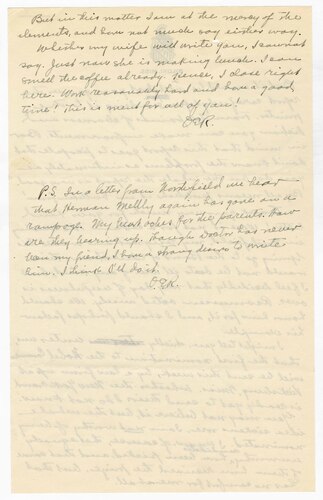 But in this matter I am at the mercy of the
elements, and have not much say either way.
Whether my wife will write you, I cannot
say. Just now she is making lunch. I can
smell the coffee already. Hence, I close right
here. Work reasonably hard and have a good
time! This is ment for all of you!
OER.
P.S. In a letter from Northfield we hear
that Herman Melby again has gone on a
rampage. My heart aches for the parents. How
are they bearing up. Though Doctor has never
been my friend, I have a strong desire to write
him. I think I'll do it.
OER.